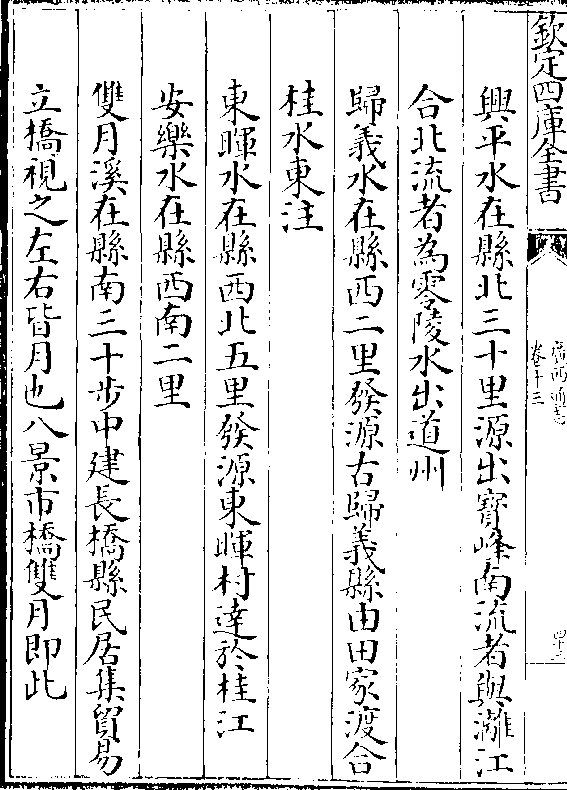 欽定四庫全書
廣西通志
卷十三
興平水在縣北三十里源出寶峰南流者與灕江
合北流者為零陵水出道州
歸義水在縣西二里發源古歸義縣由田家渡合
桂水東注
東暉水在縣西北五里發源東暉村達於桂江
安樂水在縣西南二里
雙月溪在縣南三十步中建長橋縣民居集貿易
立橋視之左右皆月也八景市橋雙月即此